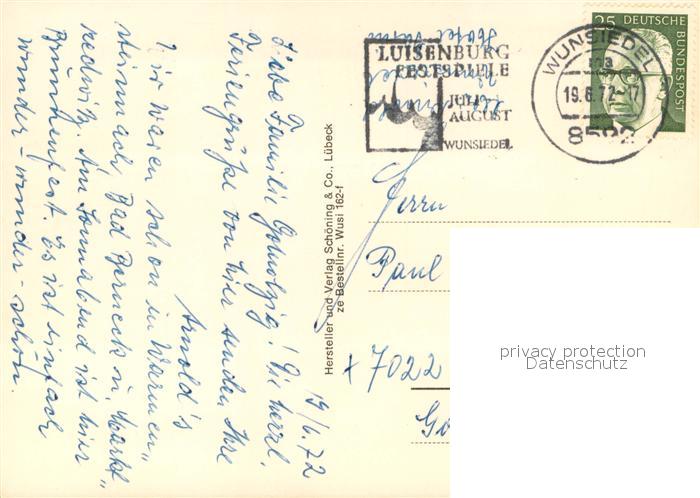 19/6.72
Liebe Familie ! Die herzl.
Feriengrüße von hier senden Ihre
Arnold's
Wir waren schon in Warmen-
steinach, Bad Berneck u. Markt-
redwitz. Am Sonnabend ist hier
Brunnenfest. Es ist einfach
wunder-wunder-schön.
Hersteller und Verlag Schöning & Co., Lübeck
ze Bestellnr. Wusi 162-f
LUISENBURG
FESTSPIELE
JULI
AUGUST
WUNSIEDEL
WUNSIEDEL
19.6.72-17
8592
25 DEUTSCHE
BUNDESPOST
Herrn
Paul
7022
privacy protection
Datenschutz